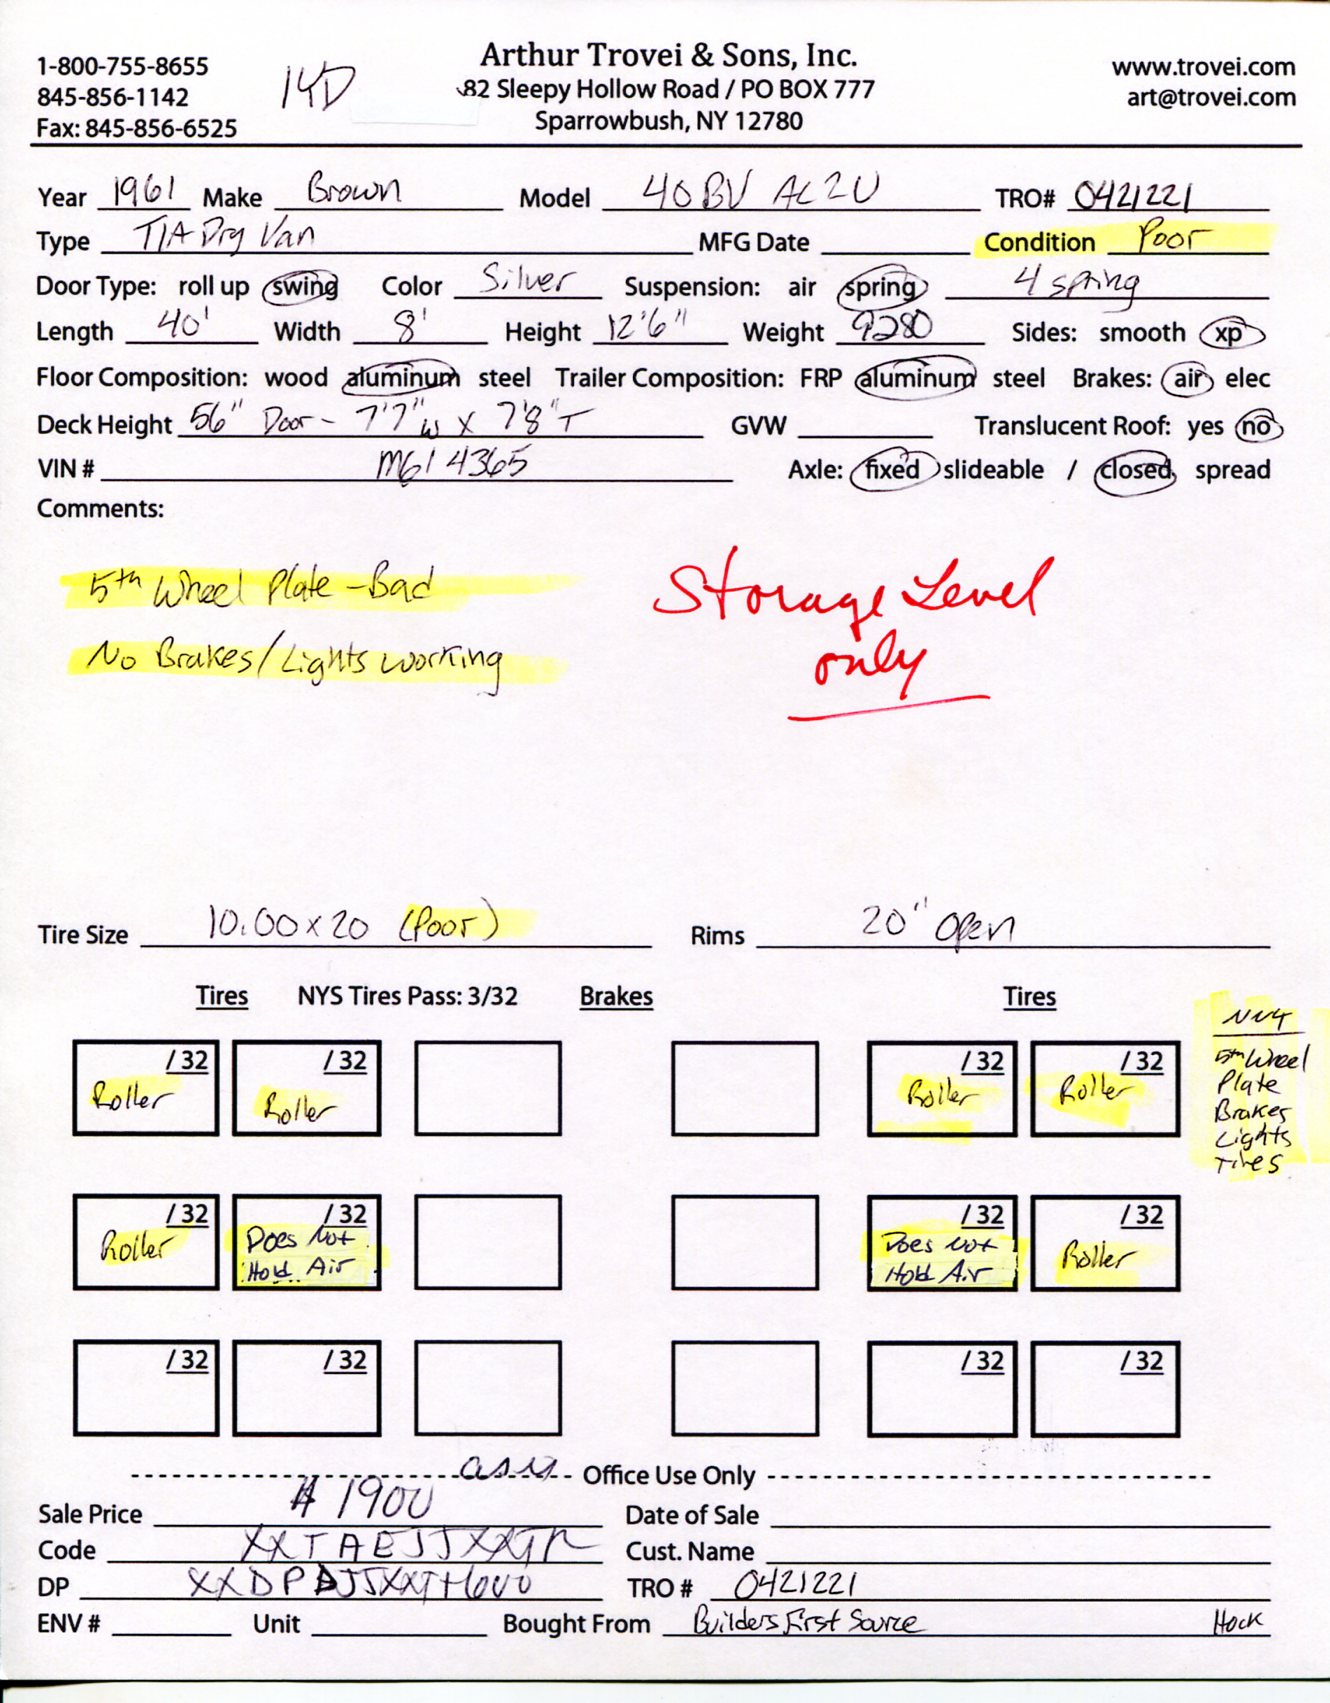 Arthur Trovei & Sons, Inc.
1-800-755-8655 82 Sleepy Hollow Road / PO BOX 777 www.trovei.com
845-856-1142 14D art@trovei.com
Fax: 845-856-6525 Sparrowbush, NY 12780
Year 1961 Make Brown Model 40BV AL2U TRO# 0421221
Type T/A Dry Van MFG Date Condition Poor
Door Type: roll up swing Color Silver Suspension: air spring 4 spring
Length 40' Width 8' Height 12'6" Weight 9280 Sides: smooth xp
Floor Composition: wood aluminum steel Trailer Composition: FRP aluminum steel Brakes: air elec
Deck Height 56" Door - 7'7" W x 7'8" T GVW Translucent Roof: yes no
VIN # M614365 Axle: fixed slideable / closed spread
Comments:
5th Wheel Plate - Bad Storage Level
No Brakes/Lights working only
Tire Size 10.00x20 (Poor) Rims 20" Open
Tires NYS Tires Pass: 3/32 Brakes Tires
/32 /32 /32 /32
Roller Roller Roller Roller
5th Wheel
Plate
Brakes
Lights
Tires
/32 /32 /32 /32
Roller Does Not Hold Air Does Not Hold Air Roller
/32 /32 /32 /32
Office Use Only
Sale Price 1900 Date of Sale
Code Cust. Name
DP TRO # 0421221
ENV # Unit Bought From Builders First Source Hock